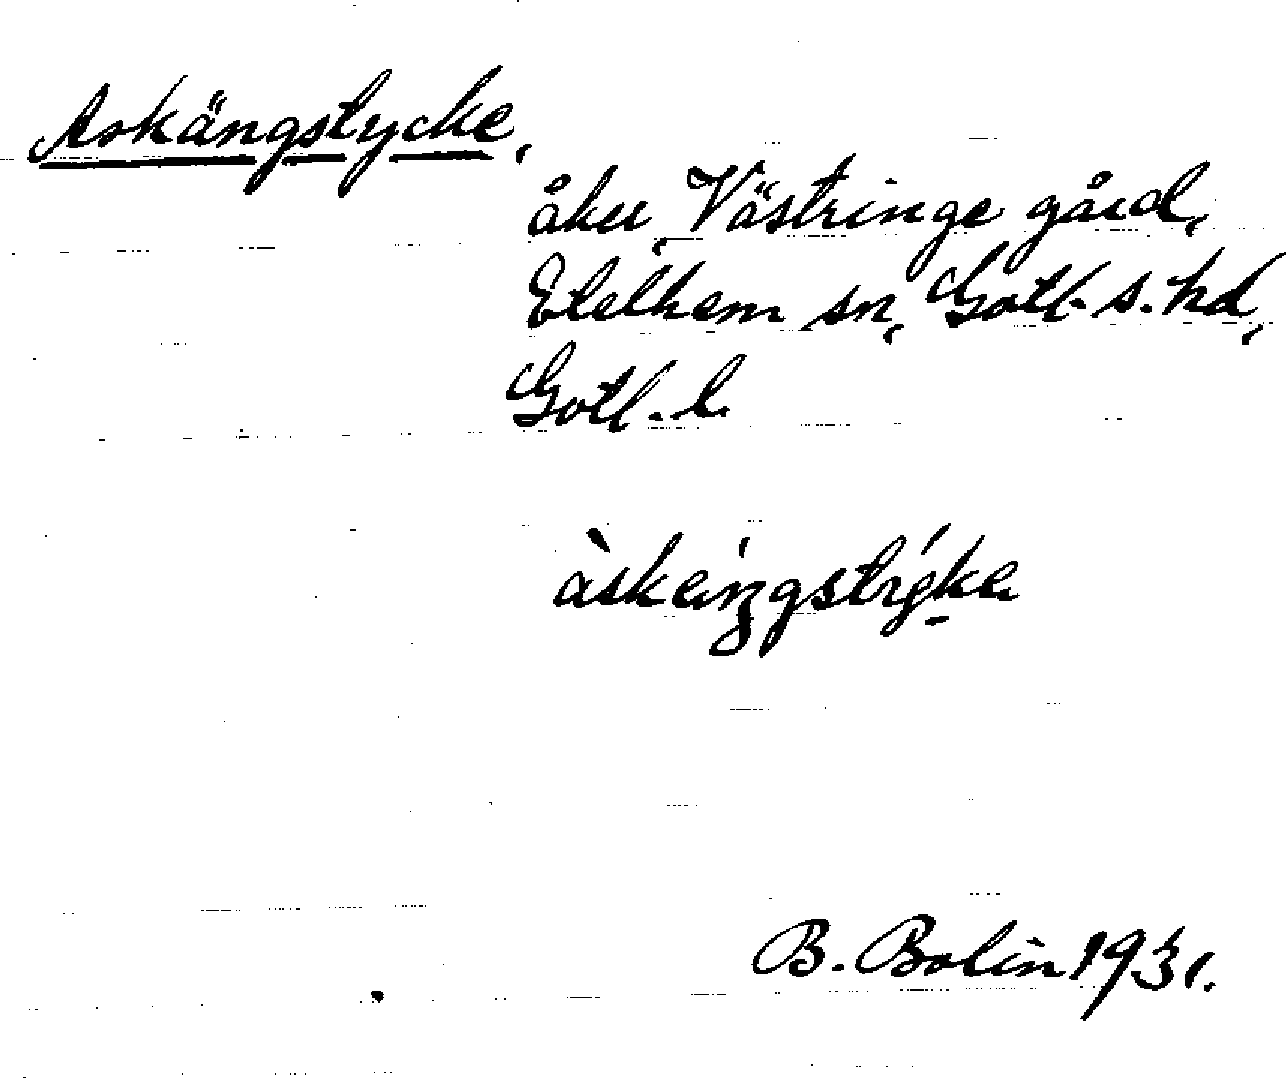 Askängstycke,
åker, Västringe gård,
Etelhem sn, Gotl. s. hd,
Gotl. l.
àskeŋgstýke
B. Bolin 1931.